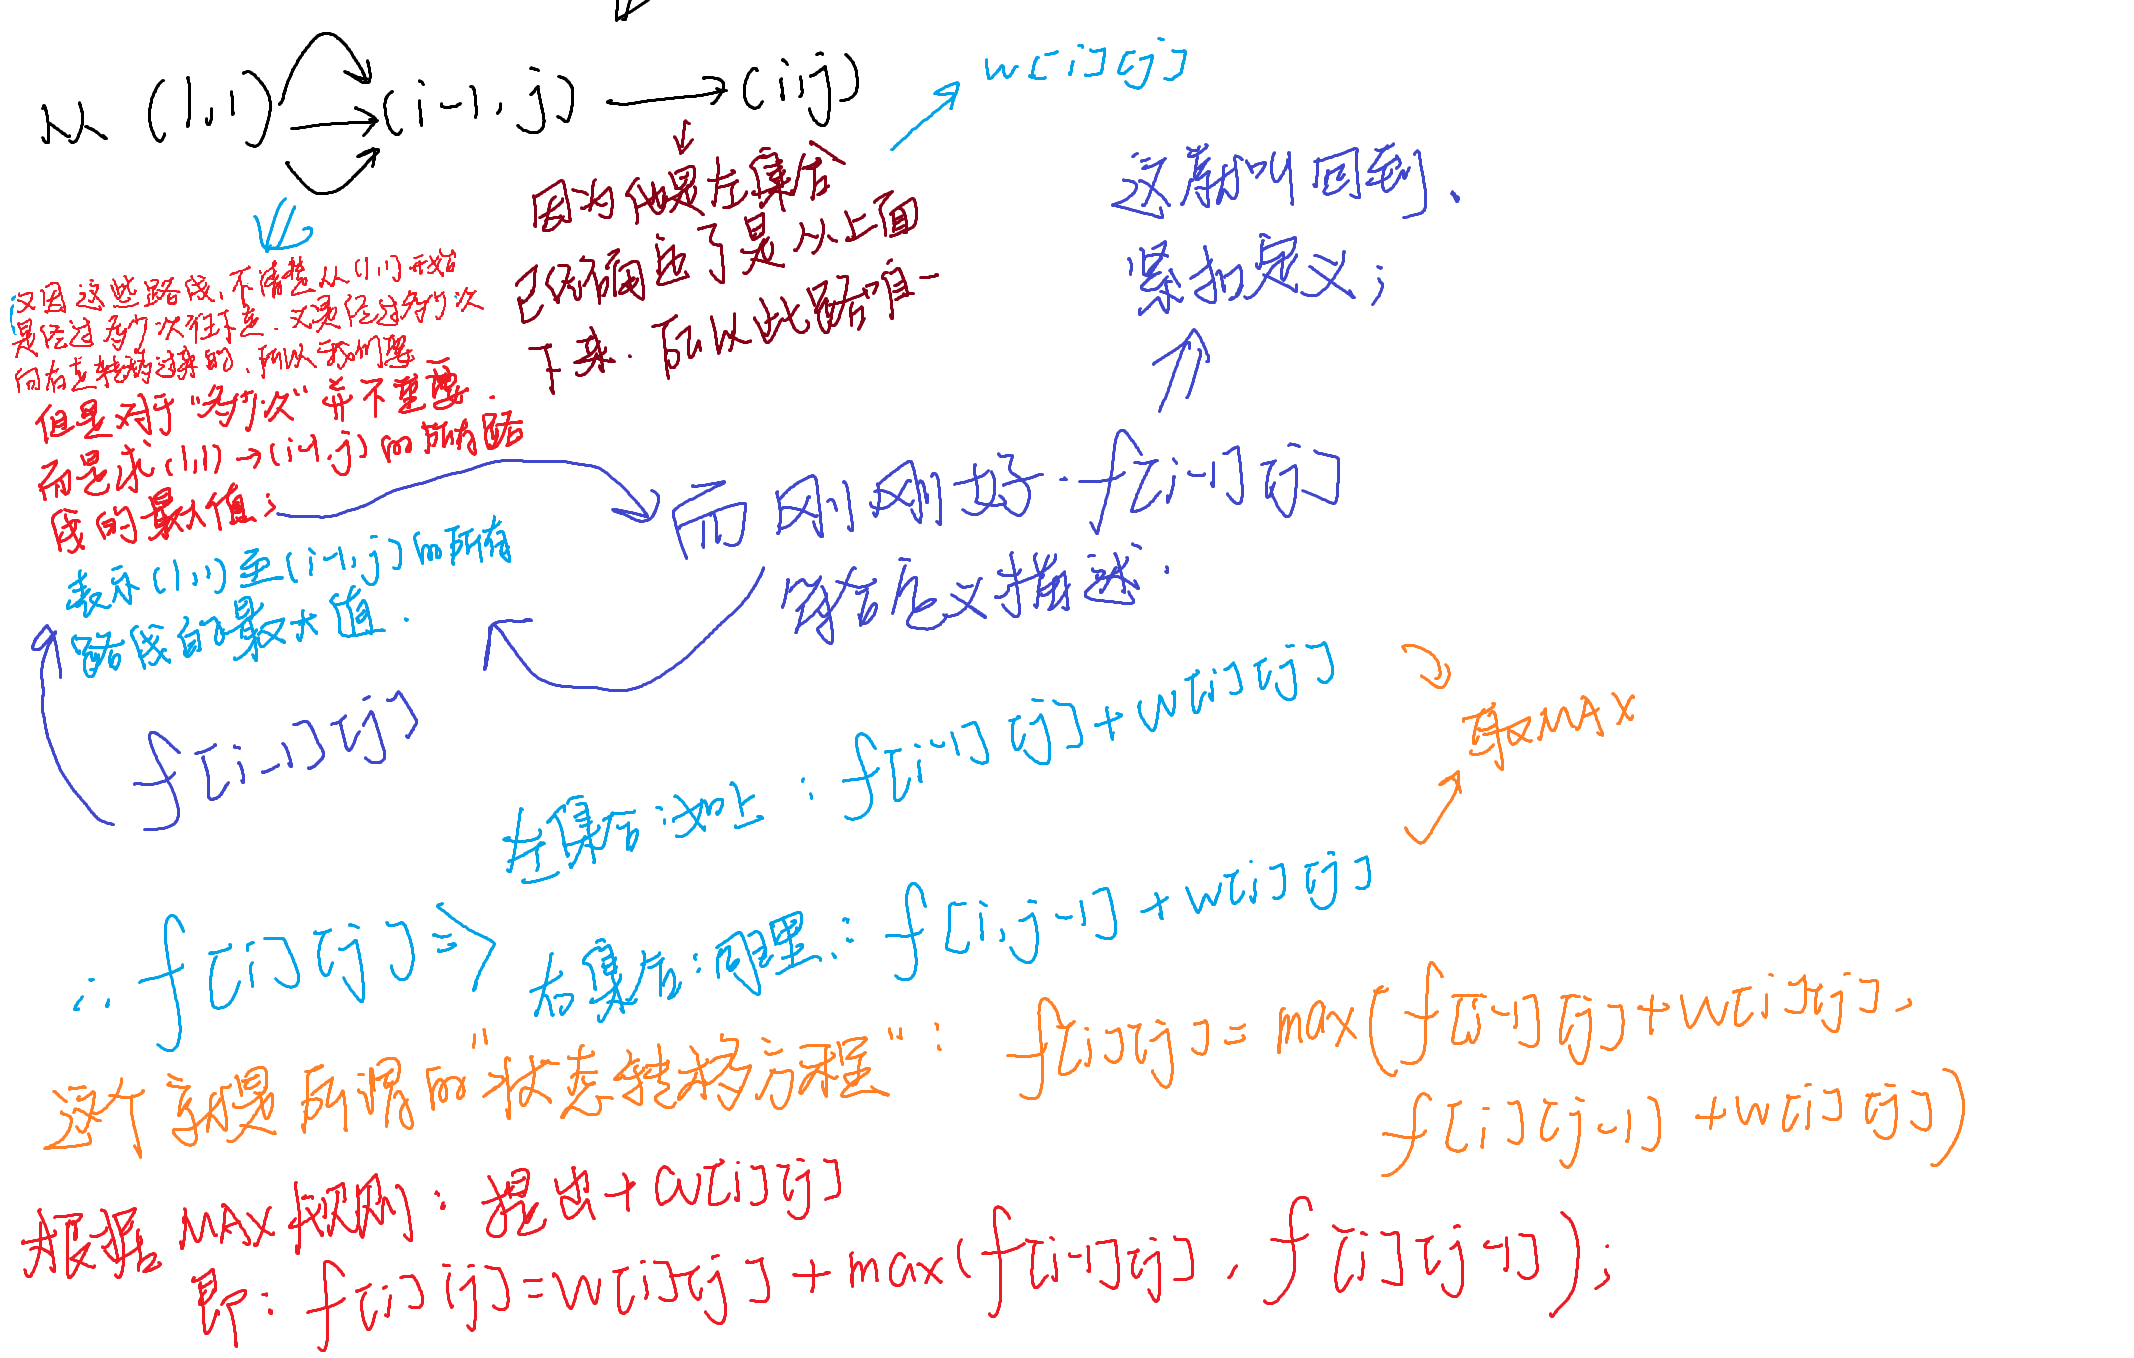 从 (1,1) (i-1, j) (i,j)
w[i][j]
因为他是左集合
已经确定了是从上面
下来. 所以此路唯一
这就叫回到、
紧扣定义;
又因这些路线,不清楚从(1,1)开始
是经过多少次往下走. 又是经过多少次
向右走转移过来的, 所以我们要
但是对于“多少次”并不重要.
而是求(1,1)→(i-1,j)的所有路
线的最大值;
而刚刚好·f[i-1][j]
符合定义描述.
表示(1,1)至(i-1,j)的所有
路线的最大值.
f[i-1][j]
左集合:如上: f[i-1][j]+w[i][j]
取MAX
∴ f[i][j]⇒
右集合:同理: f[i,j-1]+w[i][j]
这个就是所谓的“状态转移方程”: f[i][j]=max(f[i-1][j]+w[i][j],
f[i][j-1] +w[i][j])
根据MAX规则: 提出+w[i][j]
即: f[i][j]=w[i][j]+max(f[i-1][j], f[i][j-1]);